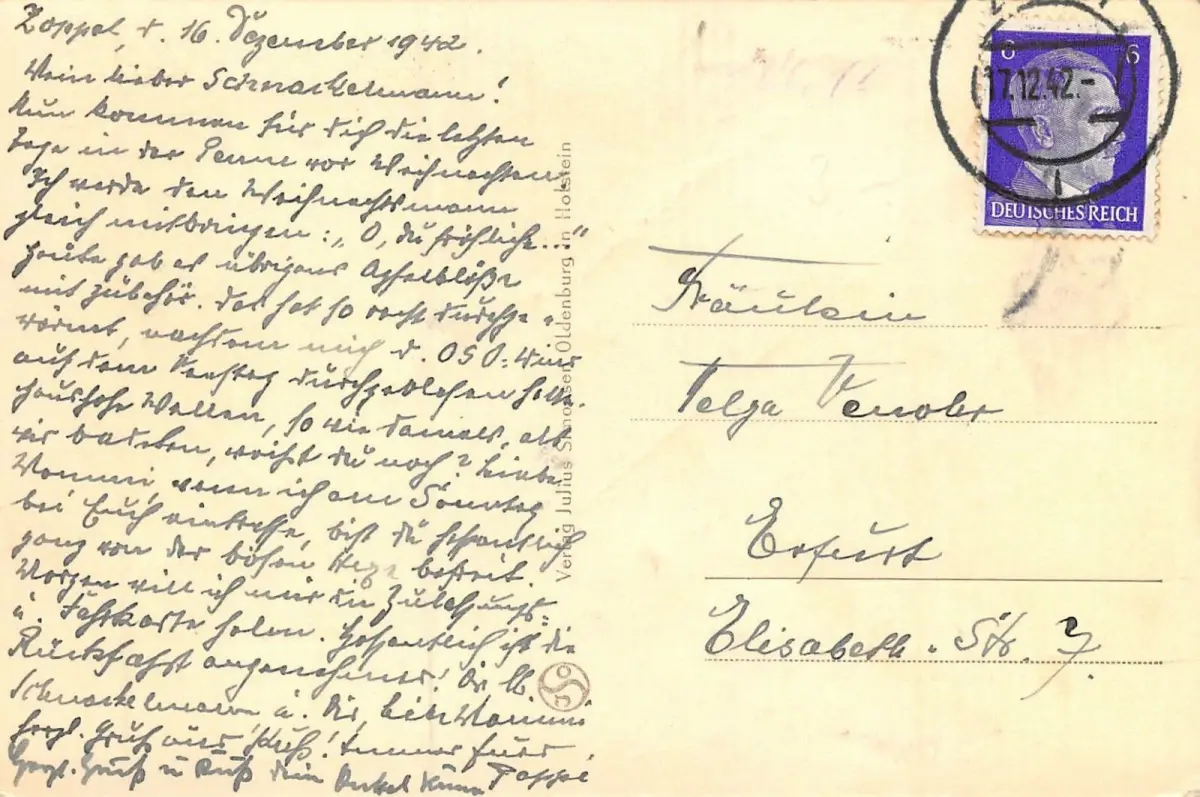 Zoppot, d. 16. Dezember 1942.
Mein lieber Schnackelmann!
Nun kommen für dich die letzten
Tage in der Penne vor Weihnachten.
Ich werde den Weihnachtsmann
gleich mitbringen: „O, du fröhliche..."
Heute gab es übrigens Apfelklöße
mit Zubehör. Das hat so recht durchge-
wärmt, nachdem mich d. OSO-Wind
auf dem Seesteg durchgeblasen hatte.
Haushohe Wellen, so wie damals, als
wir badeten, weißt du noch? Liebe
Mommi, wenn ich am Sonntag
bei Euch eintreffe, bist du hoffentlich
ganz von der bösen Hexe befreit.
Morgen will ich mir die Zulassungs-
u. Fahrkarte holen. Hoffentlich ist die
Rückfahrt angenehmer! Dir, lb.
Schnackelmann u. Dir, liebe Mommi
herzl. Gruß und Kuß! Immer Euer
Pappi
Herzl. Gruß u Kuß dein Onkel
Verlag Julius Simonsen, Oldenburg in Holstein
17.12.42.-
6 6
DEUTSCHES REICH
Fräulein
Helga
Erfurt
Elisabeth-Str. 7.